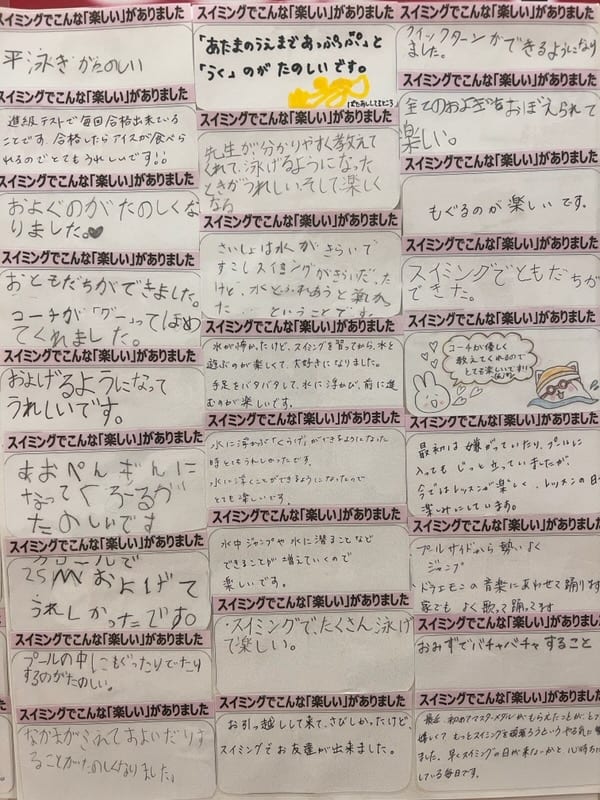 スイミングでこんな「楽しい」がありました
平泳ぎがたのしい
スイミングでこんな「楽しい」がありました
進級テストで毎回合格出来ている
ことです。合格したらアイスが食べら
れるのでとてもうれしいです!!
スイミングでこんな「楽しい」がありました
およぐのがたのしくな
りました。♥
スイミングでこんな「楽しい」がありました
おともだちができました。
コーチが「グー」ってほめ
てくれました。
スイミングでこんな「楽しい」がありました
およげるようになって
うれしいです。
スイミングでこんな「楽しい」がありました
すおぺんぎんに
なってくろーるが
たのしいです
スイミングでこんな「楽しい」がありました
クロールで
25Mおよげて
うれしかったです。
スイミングでこんな「楽しい」がありました
プールの中にもぐったりでたり
するのがたのしい。
スイミングでこんな「楽しい」がありました
なかまがふえておよいだりす
ることがたのしくなりました。
スイミングでこんな「楽しい」がありました
「あたまのうえまであっぷっぷ」と
「うく」のがたのしいです。
スイミングでこんな「楽しい」がありました
先生が分かりやすく教えて
くれて、泳げるようになった
ときがうれしいそして楽しく
なる
スイミングでこんな「楽しい」がありました
さいしょは水がきらいで
すこしスイミングがきらいだった
けど、水とふれあうと
た
ということです。
スイミングでこんな「楽しい」がありました
水が怖かったけど、スイミングを習ってから、水と
遊ぶのが楽しくて、大好きになりました。
手足をバタバタして、水に浮かび、前に進
むのが楽しいです。
スイミングでこんな「楽しい」がありました
水に浮かぶ「くらげ」ができるようになった
時とてもうれしかったです。
水に浮くことができるようになったので
とても楽しいです。
スイミングでこんな「楽しい」がありました
水中ジャンプや水に潜ることなど
できることが増えていくので
楽しいです。
スイミングでこんな「楽しい」がありました
スイミングで、たくさん泳げ
て楽しい。
スイミングでこんな「楽しい」がありました
お引っ越しして来て、さびしかったけど、
スイミングでお友達が出来ました。
スイミングでこんな「楽しい」がありました
クイックターンができるようになり
ました。
スイミングでこんな「楽しい」がありました
全てのおよぎをおぼえられて
楽しい。
スイミングでこんな「楽しい」がありました
もぐるのが楽しいです。
スイミングでこんな「楽しい」がありました
スイミングでともだちが
できた。
スイミングでこんな「楽しい」がありました
コーチが優しく
教えてくれるので
とても楽しいです!!
スイミングでこんな「楽しい」がありました
最初は嫌がっていたり、プールに
入ってもじっと立っていましたが、
今ではレッスンが楽しく、レッスンの日を
楽しみにしています。
スイミングでこんな「楽しい」がありました
プールサイドから勢いよく
ジャンプ
ドラえモンの音楽にあわせて踊ります
家でもよく歌って踊ってます
スイミングでこんな「楽しい」がありました
おみずでバチャバチャすること
スイミングでこんな「楽しい」がありました
最近、初めてマスターメダルがもらえたことが、とても
嬉しくてもっとスイミングを頑張ろうというやる気に
ました。早くスイミングの日が来ないかと心待ちに
している毎日です。